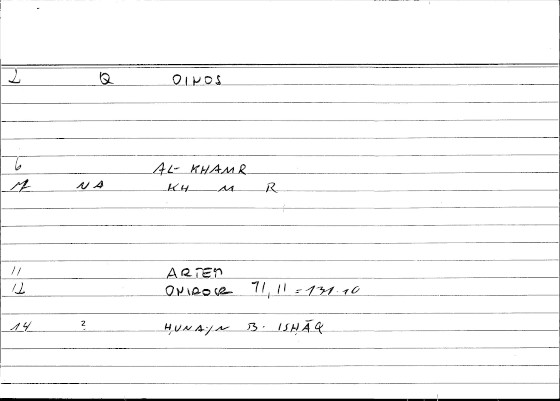 2 Q OINOS
6 AL- KHAMR
M NA KH M R
11 ARTEM
12 ONIROCR 71, 11 = 131.10
14 2 ḤUNAYN B. ISḤĀQ